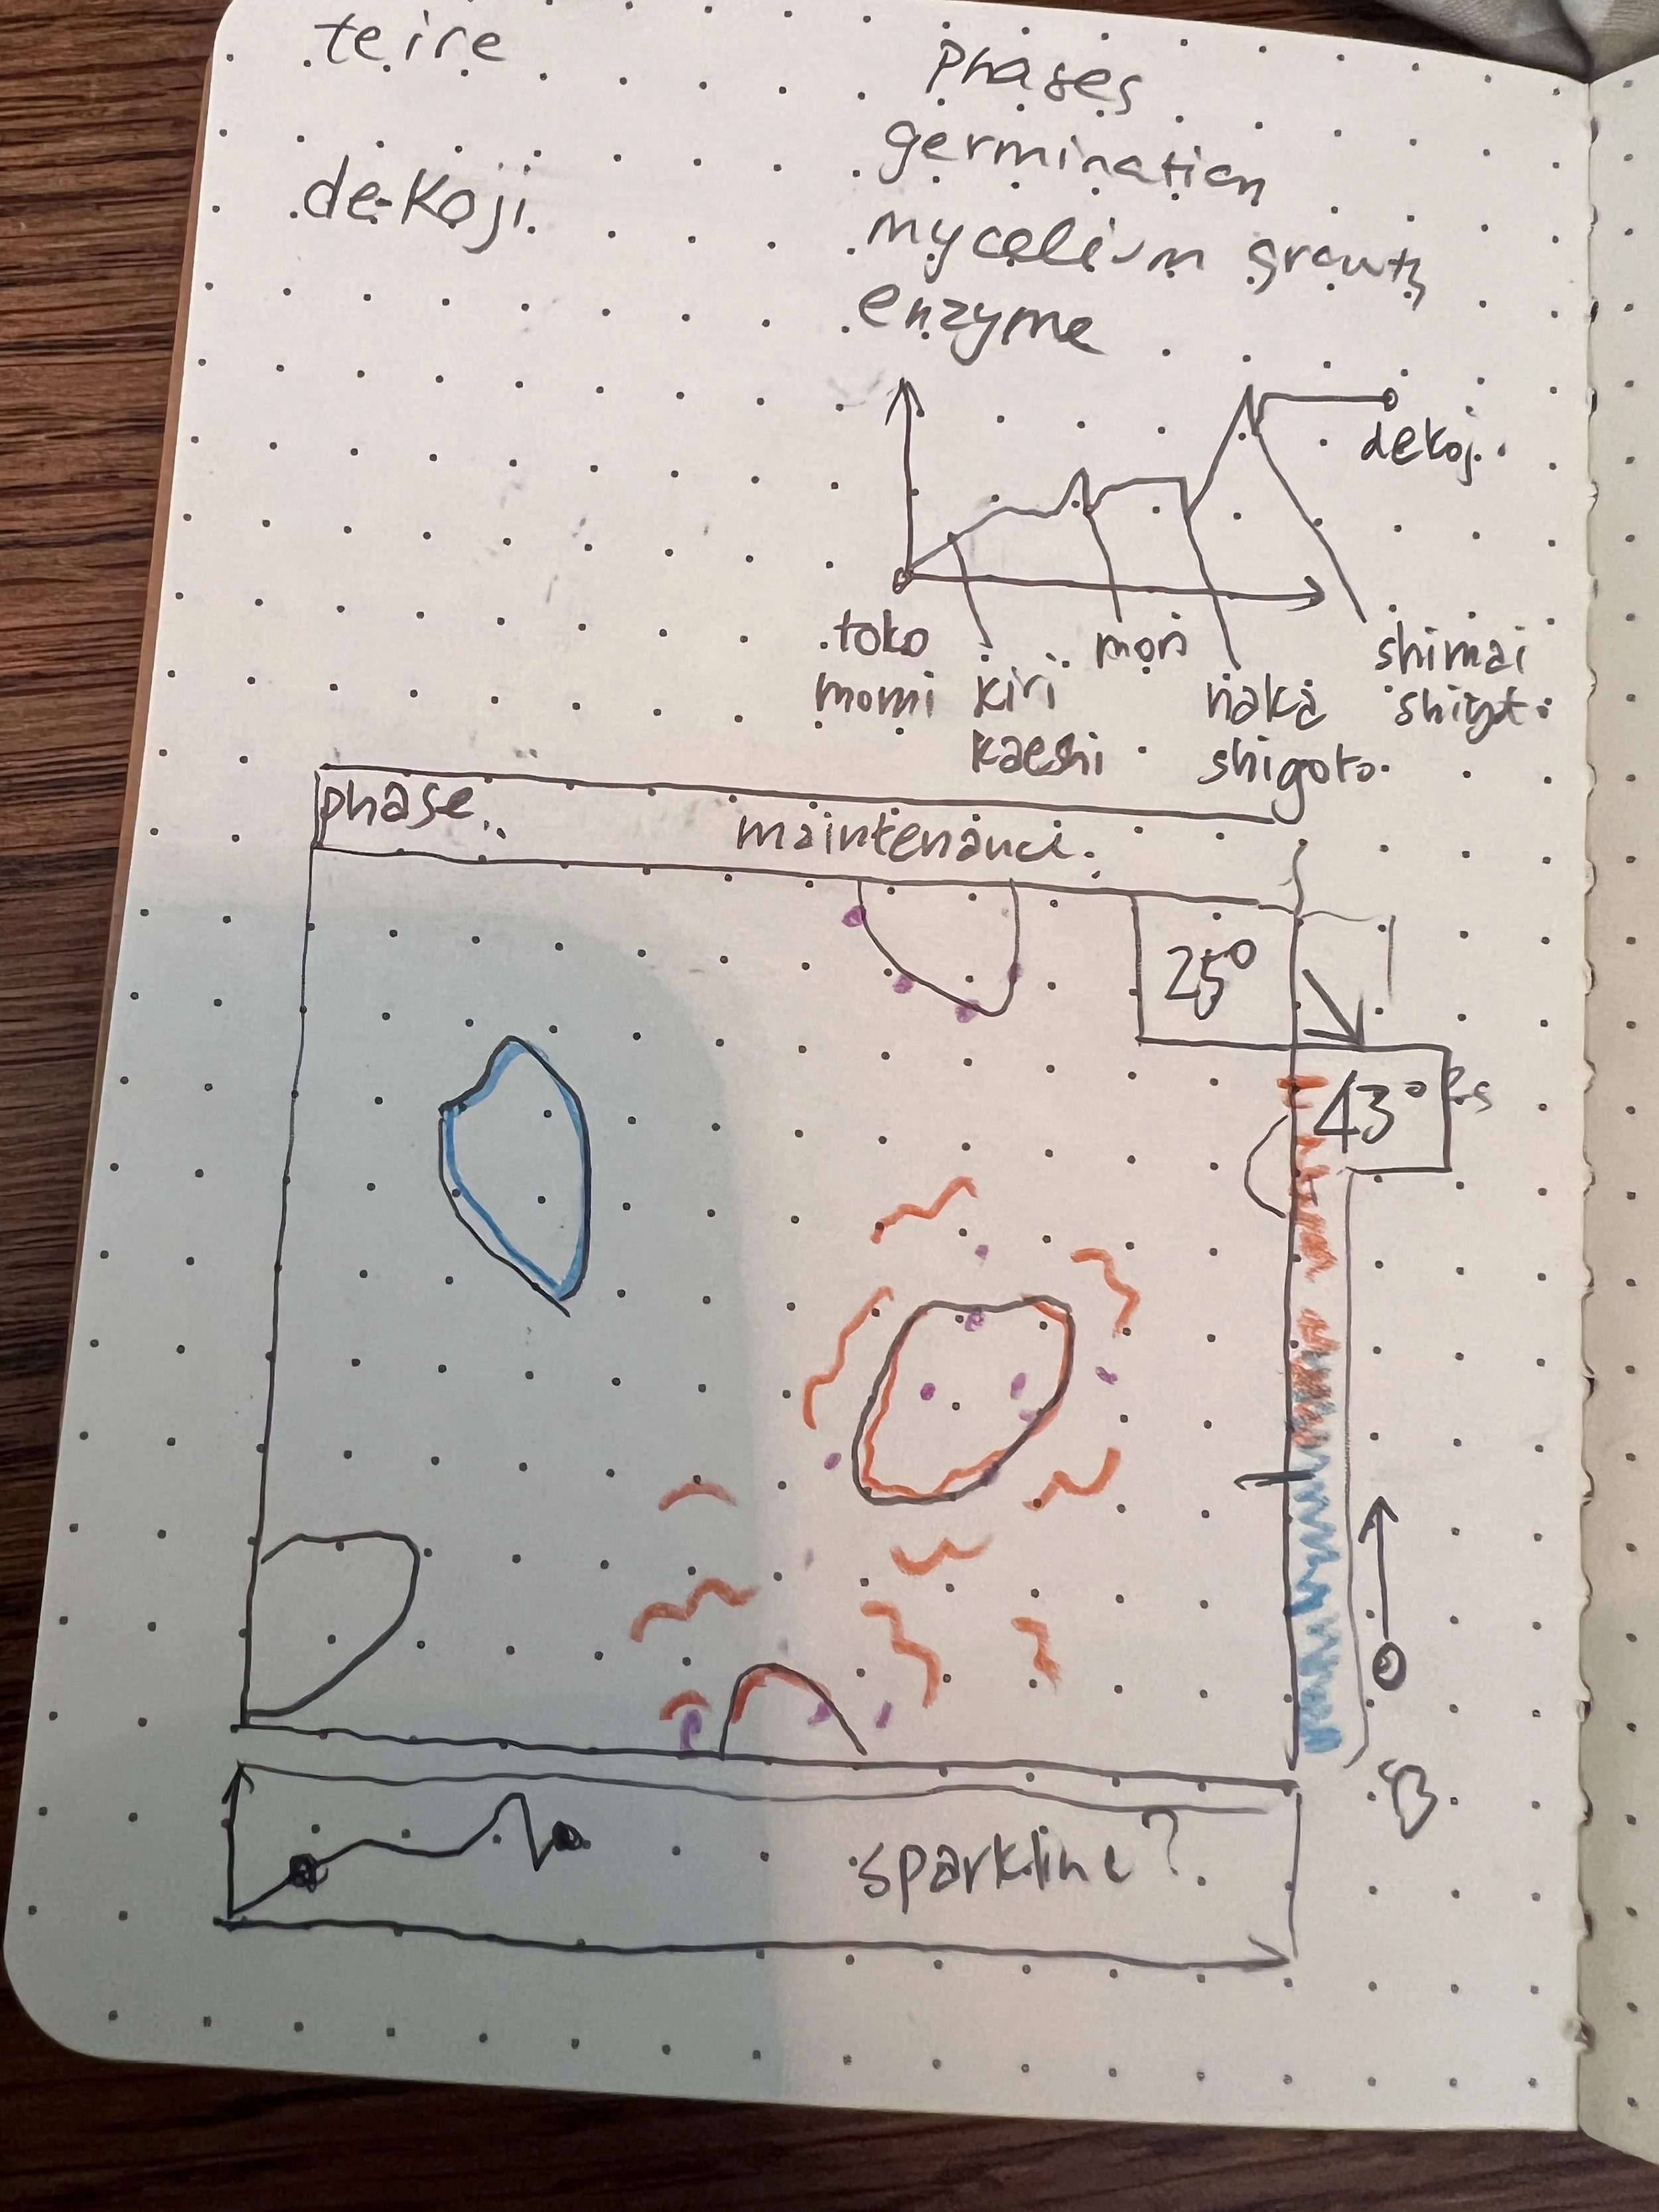 teire
de-koji
Phases
germination
mycelium growth
enzyme
dekoji
toko
momi
kiri
kaeshi
mori
naka
shigoto
shimai
phase
maintenance
25°
43°
sparkline?